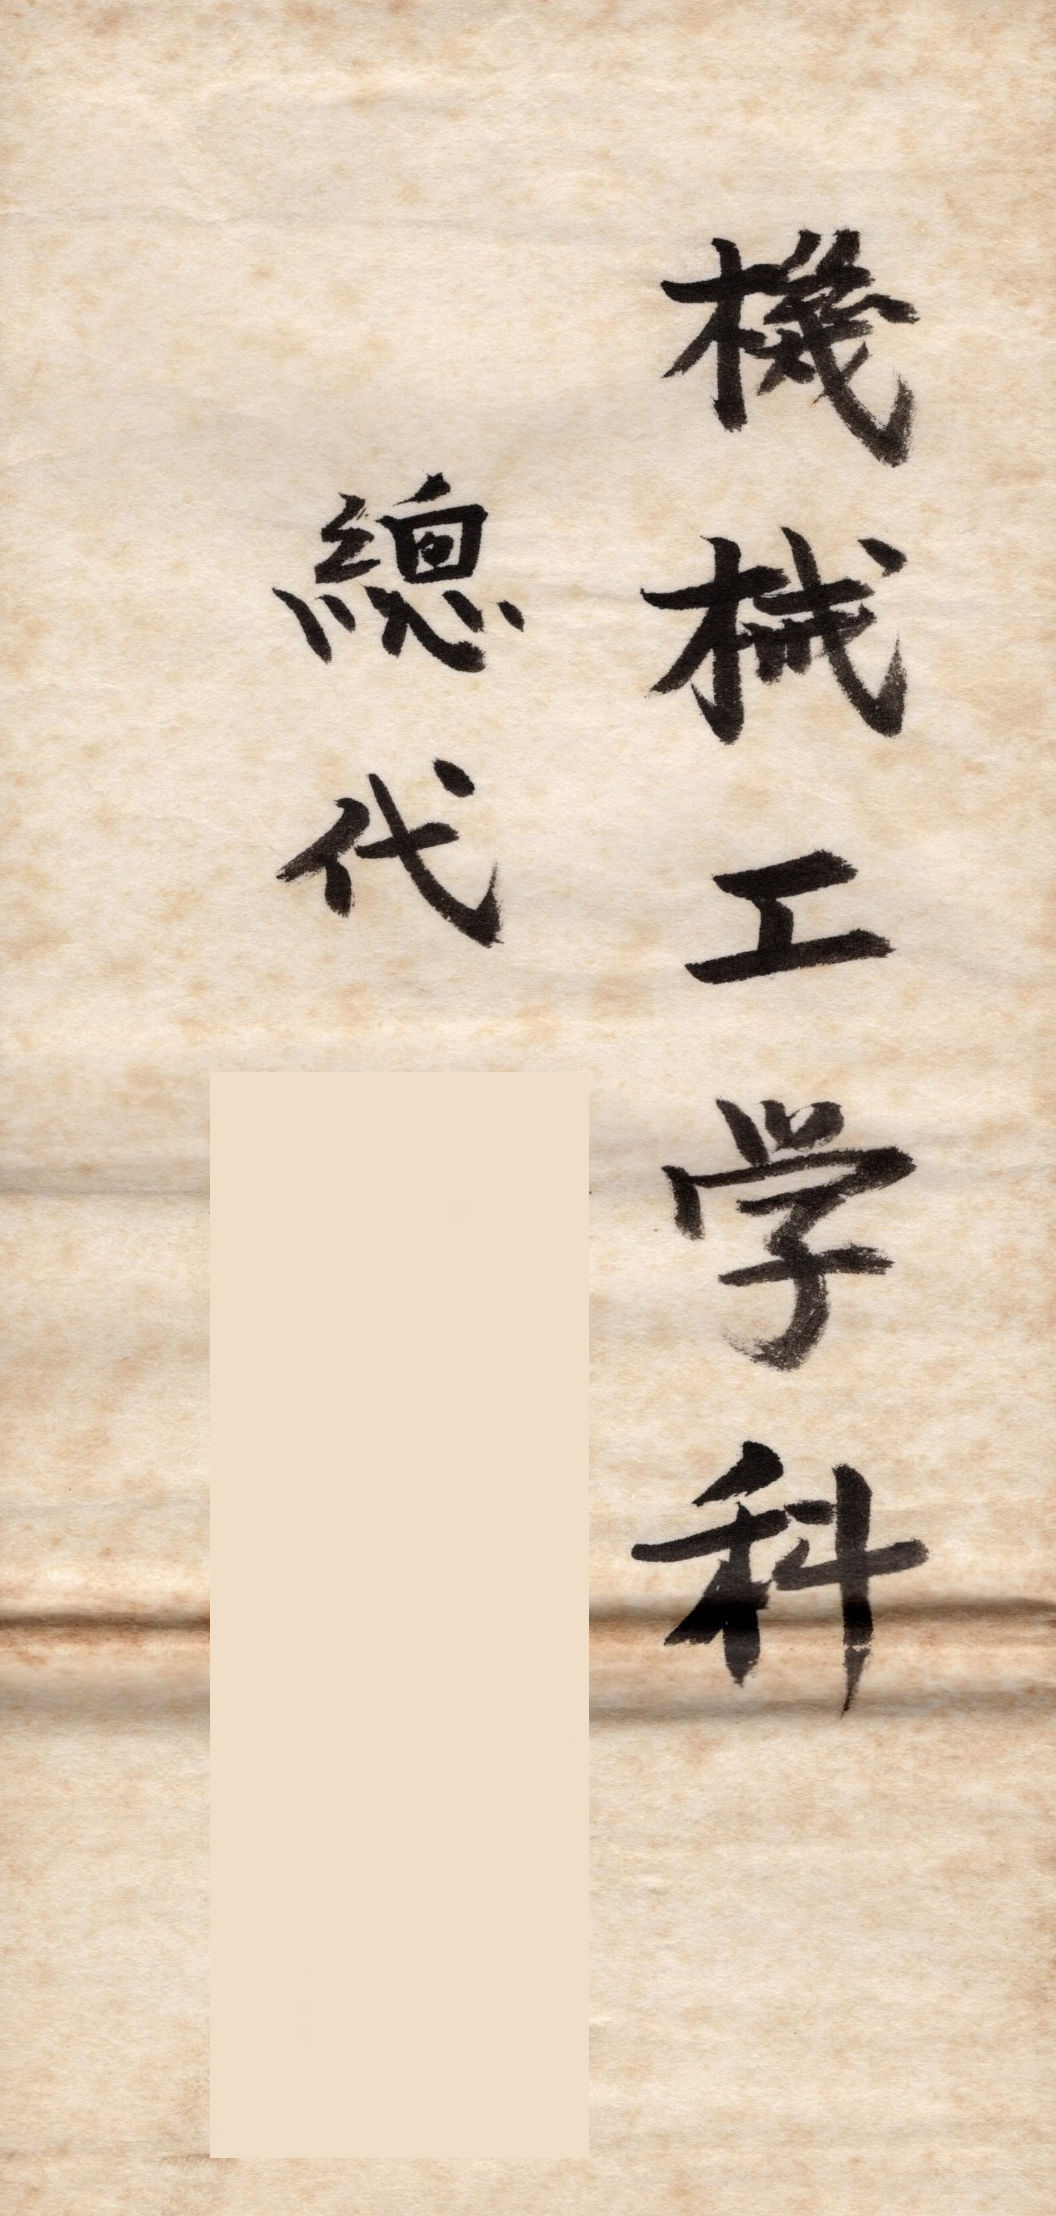 機械工学科
總代